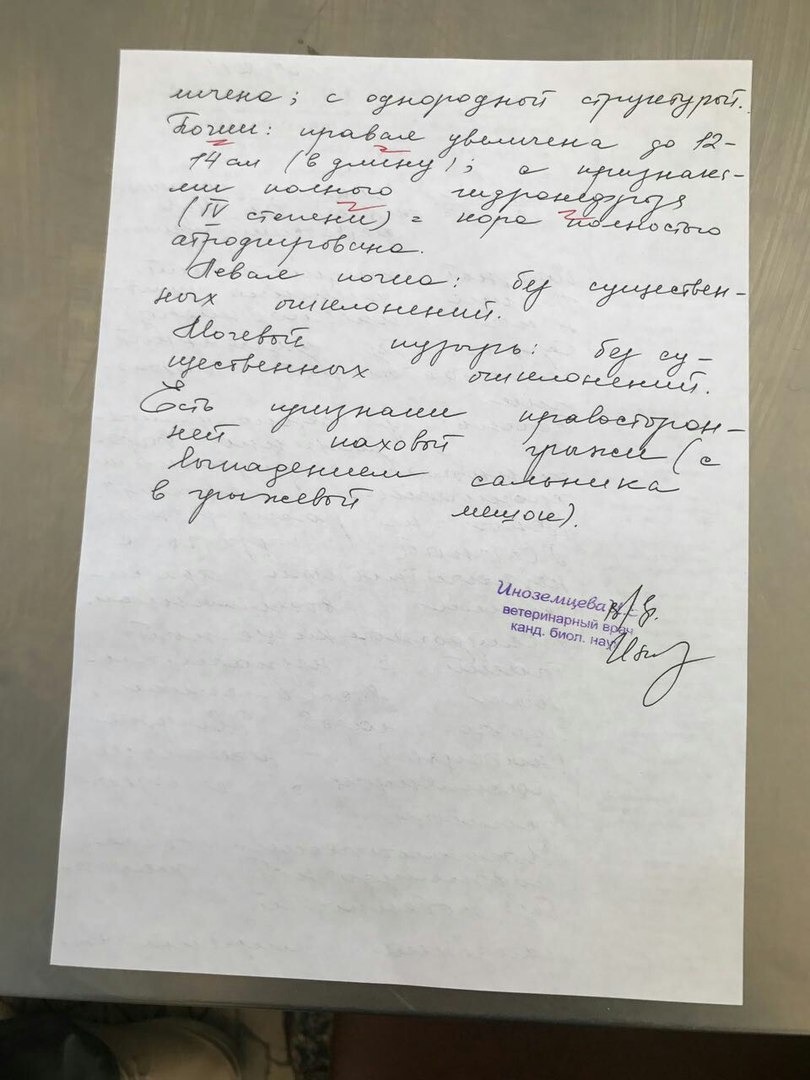 личена; с однородной структурой.
Почки: правая увеличена до 12-
14 см (в длину); с признака-
ми полного гидронефроза
(IV степени) = кора полностью
атрофирована.
Левая почка: без существен-
ных отклонений.
Мочевой пузырь: без су-
щественных отклонений.
Есть признаки правосторон-
ней паховой грыжи (с
выпадением сальника
в грыжевой мешок).
Иноземцева
ветеринарный врач
канд. биол. наук